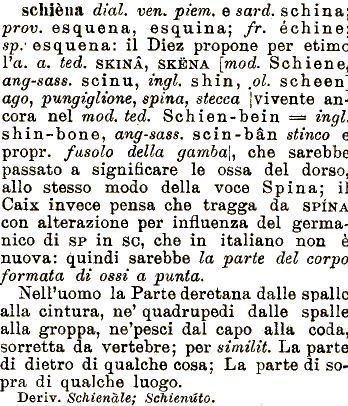 schièna dial. ven. piem. e sard. schina;
prov. esquena, esquina; fr. échine;
sp. esquena: il Diez propone per etimo
l'a. a. ted. SKINÂ, SKËNA [mod. Schiene,
ang-sass. scinu, ingl. shin, ol. scheen]
ago, pungiglione, spina, stecca |vivente an-
cora nel mod. ted. Schien-bein = ingl.
shin-bone, ang-sass. scin-bân stinco e
propr. fusolo della gamba|, che sarebbe
passato a significare le ossa del dorso,
allo stesso modo della voce Spina; il
Caix invece pensa che tragga da SPÍNA
con alterazione per influenza del germa-
nico di SP in SC, che in italiano non è
nuova: quindi sarebbe la parte del corpo
formata di ossi a punta.
Nell'uomo la Parte deretana dalle spalle
alla cintura, ne' quadrupedi dalle spalle
alla groppa, ne'pesci dal capo alla coda,
sorretta da vertebre; per similit. La parte
di dietro di qualche cosa; La parte di so-
pra di qualche luogo.
Deriv. Schienàle; Schienúto.